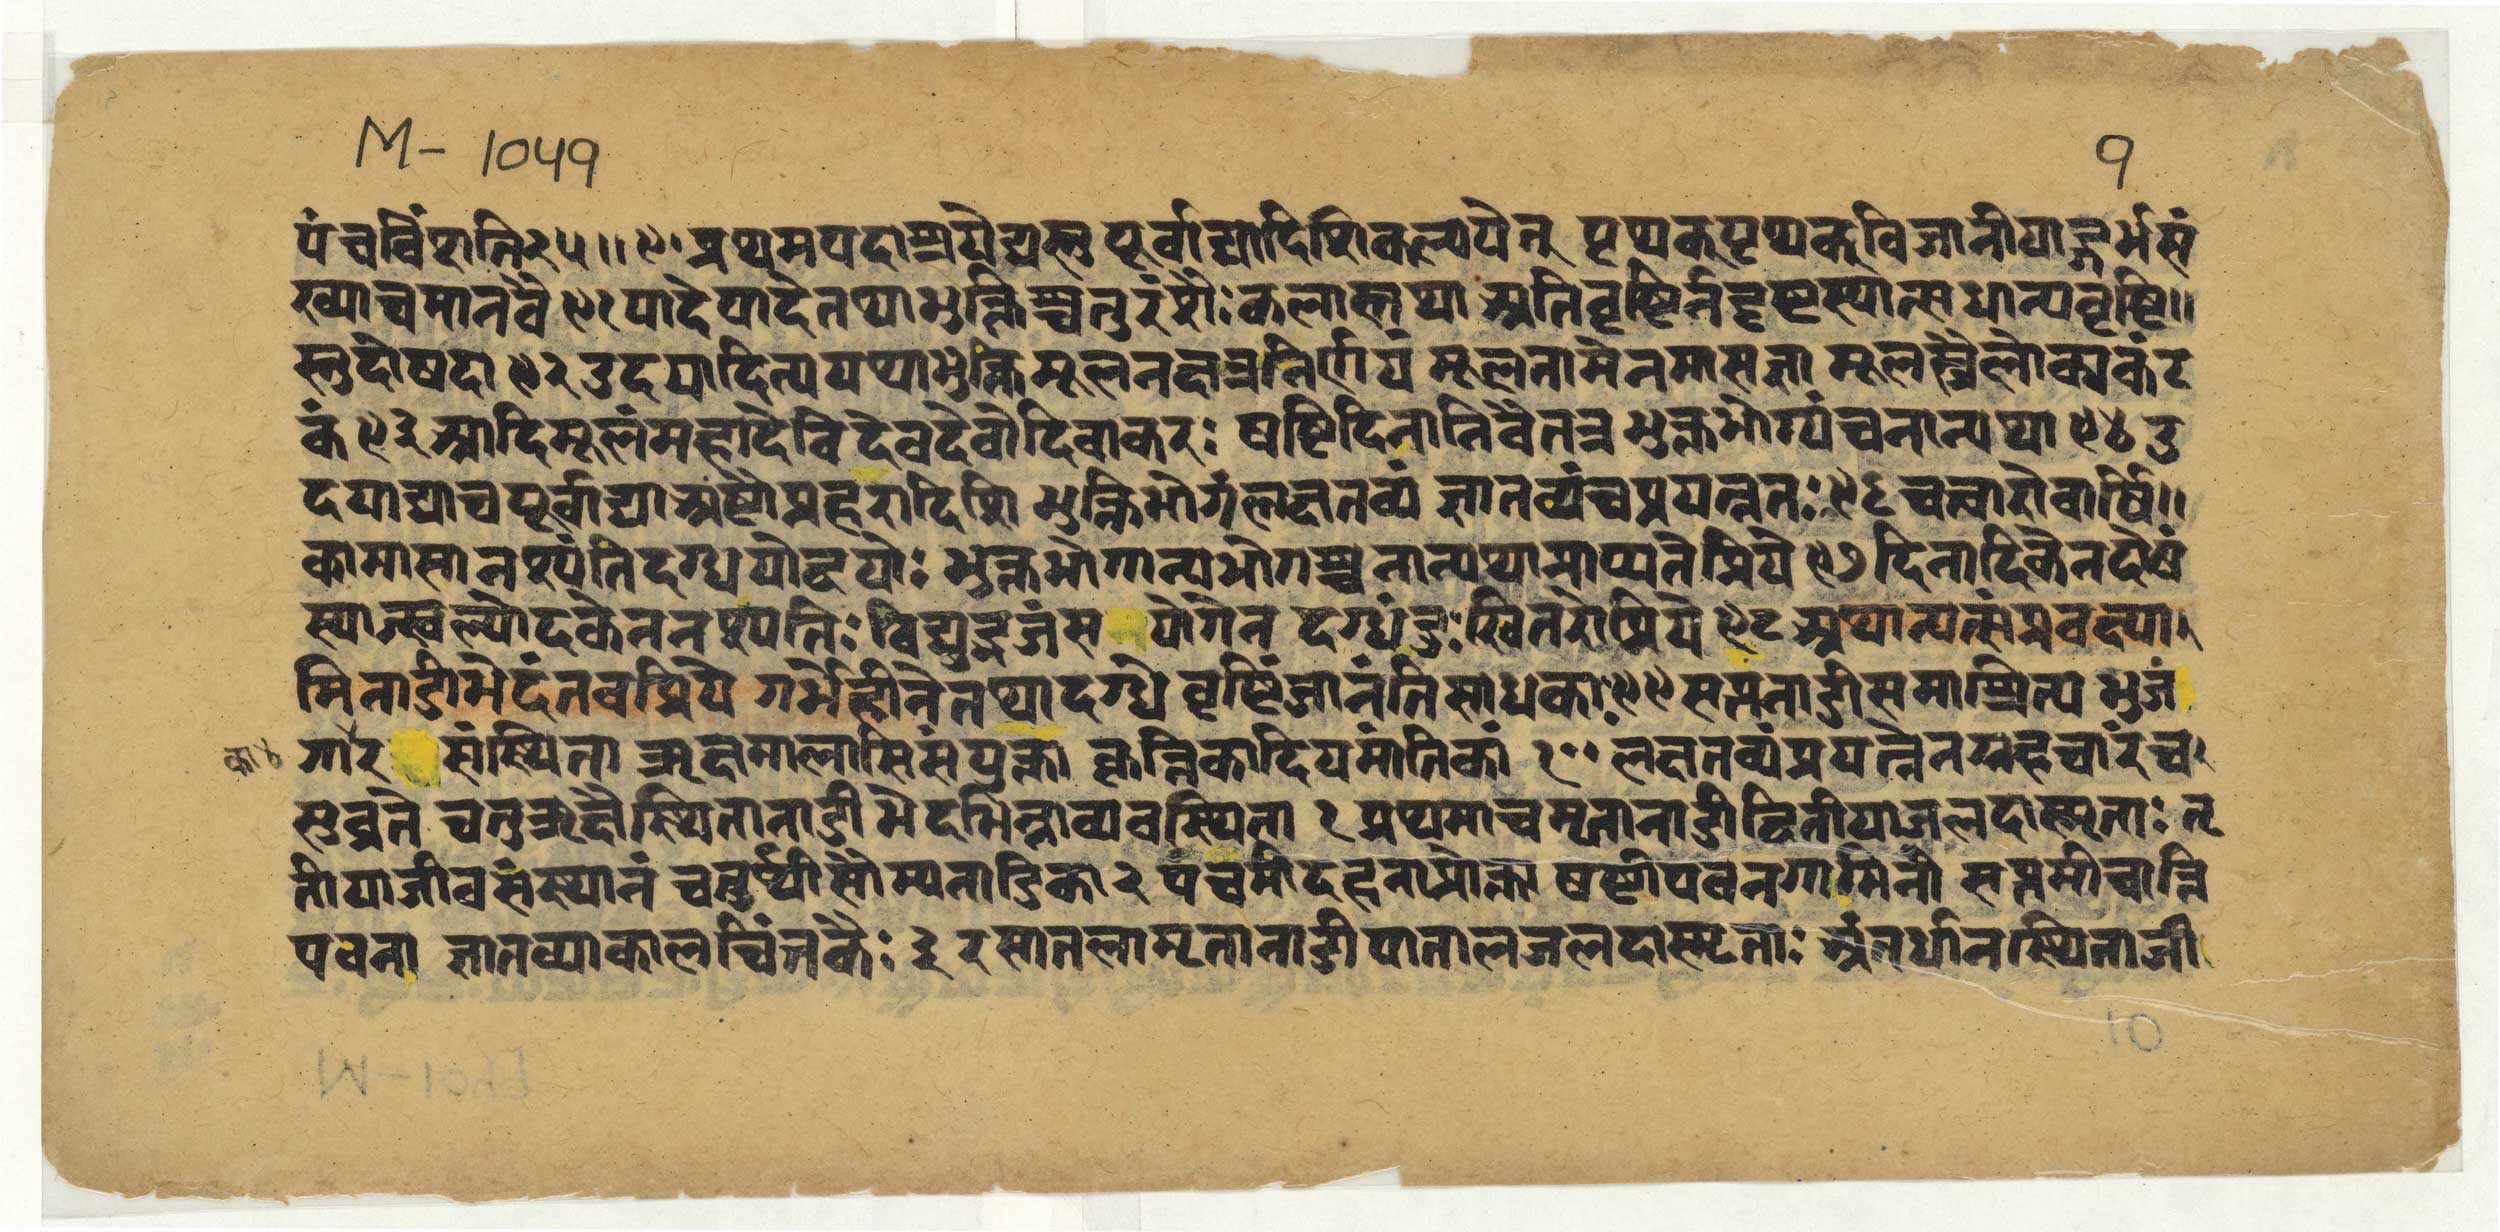 M- 1049
9
पंचविंशति२५।।९० प्रथमपदाश्रयेद्यस्तु पूर्वाद्यादिशिकल्पयेत् पृथकपृथकविजानीयाद्गर्भसं
ख्याचमानवै ९१ पादेपादेतथाभुक्तिश्चतुरंशैः कलास्तथा अतिवृष्टिर्नदृष्टस्यात्सधान्यवृष्टि।।
स्तुदोषदा ९२ उदयादित्ययथाभुक्तिमूलनक्षत्रनिर्णयं मूलनामेनमासज्ञा मूलस्त्रैलोक्यकंट
कं ९३ आदिमूलंमहादेविदेवदेवोदिवाकरः षष्टिदिनानिवैतत्र भुक्तभोग्यंचनान्यथा ९४ उ
दयाद्याचपूर्वाद्याअष्टौप्रहरादिशि भुक्तिभोगंलक्षतव्यं ज्ञातव्यंचप्रयत्नतः ९६ चत्वारोवार्षि।।
कामासानश्यंतिदग्धयोद्वयोः भुक्तभोगान्यभोगश्चनान्यथाप्राप्यतेप्रिये ९७ दिनादिकेनदोषं
स्यात्स्वल्पोदकेननश्यतिः विद्युद्गर्जंस योगेन दग्धंदुःखितराप्रिये ९८ अथान्यत्संप्रवक्ष्या
मिनाडीभेदंतवप्रिये गर्भहीनेतथादग्धे वृष्टिंजानंतिसाधकाः ९९ सप्तनाडीसमाश्रित्य भुजं
गार संस्थिता ऋक्षमालासिसंयुक्ता कृत्तिकादियमांतिकां १०० लक्षतव्यंप्रयत्नेनग्रहचारंच
सुव्रते चतुऋक्षेस्थितानाडीभेदभिन्नाव्यवस्थिता १ प्रथमाचमृतानाडीद्वितीयाजलदास्मृताः तृ
तीयाजीवसंस्थानं चतुर्थीसौम्यनाडिका २ पंचमीदहनाप्रोक्ता षष्टीपवनगामिनी सप्तमीचाग्नि
पवना ज्ञातव्याकालचिंतकैः ३ रसातलामृतानाडीपातालजलदास्मृताः अंतर्धानस्थिताजी